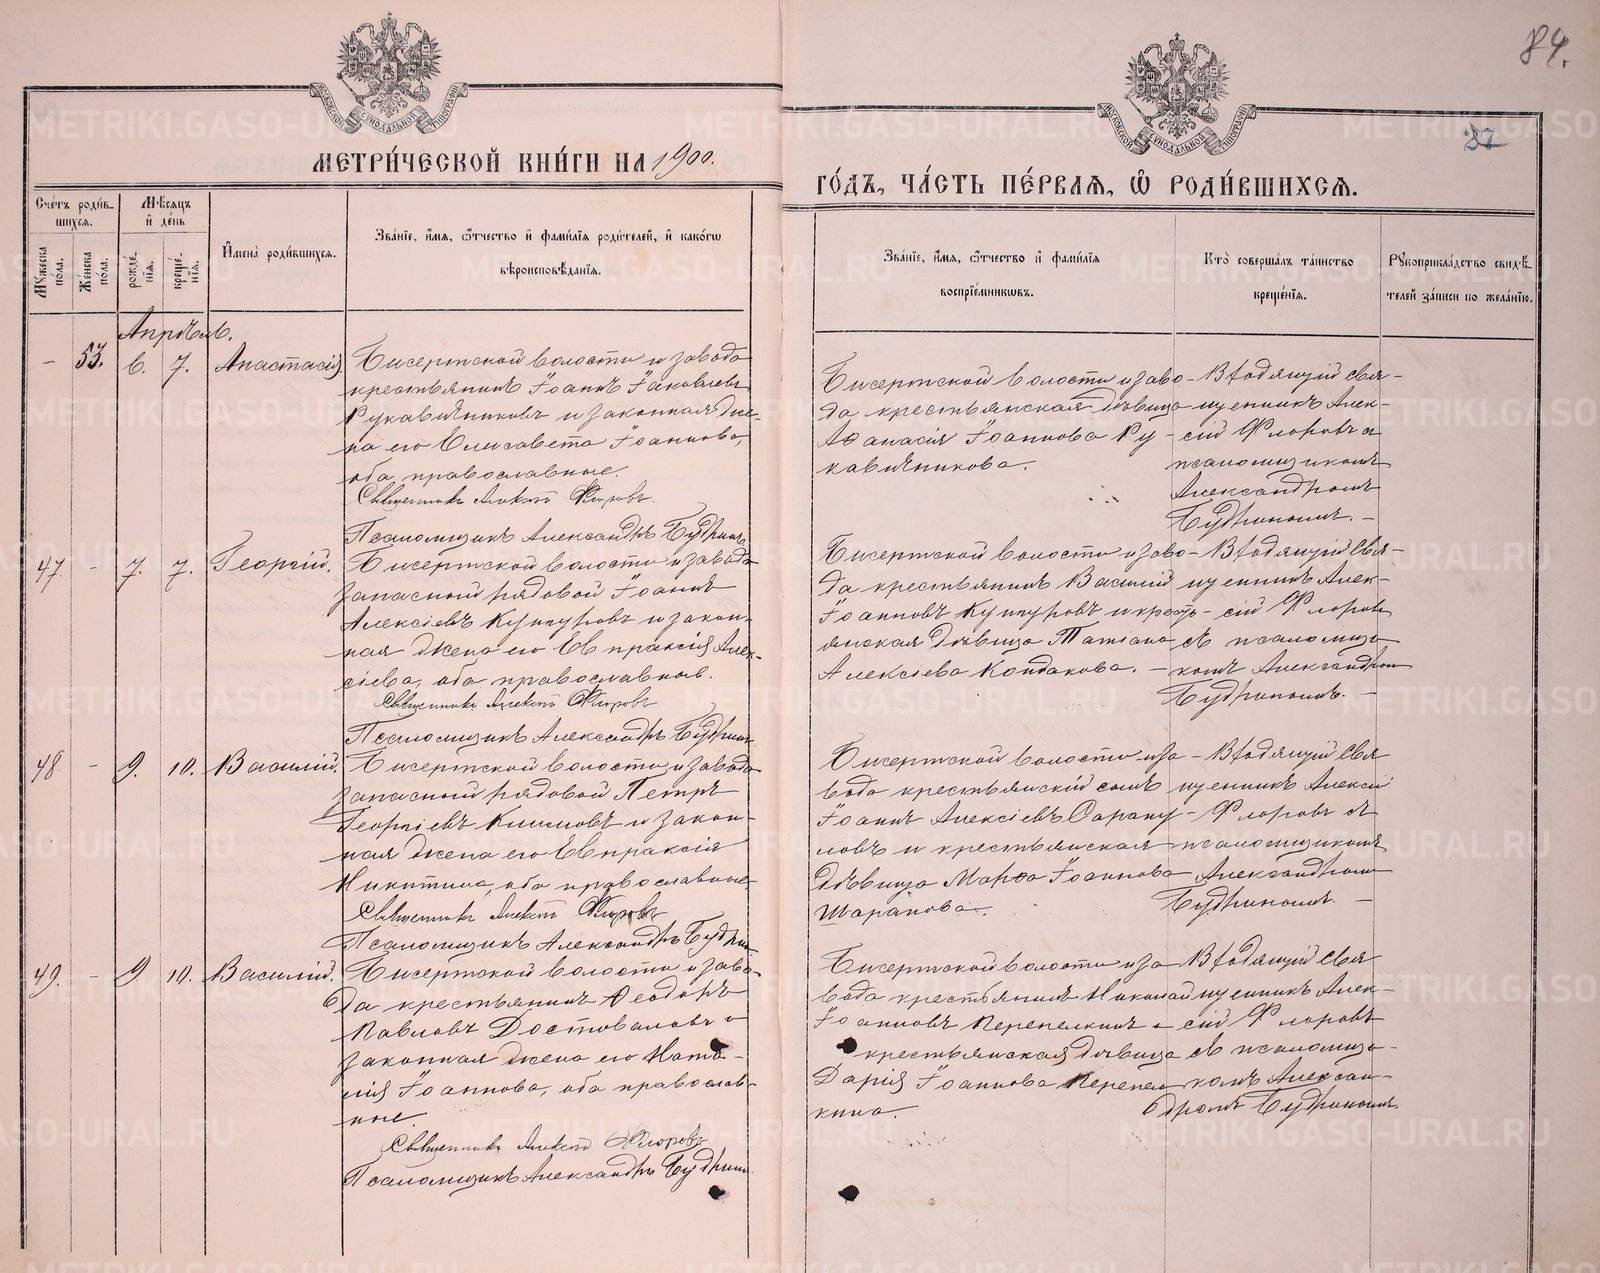 84.
87
МЕТРИ́ЧЕСКОЙ КНИ́ГИ НА 1900.
ГО́ДЪ, ЧА́СТЬ ПЕ́РВАЯ, Ѡ҆ РОДИ́ВШИХСЯ.
Сче́тъ роди́в-
шихся.
Мѣ́сяцъ
и҆ де́нь
Мꙋ́жеска по́ла.
Же́нска по́ла.
рожде́-
нія.
креще́-
нія.
И҆мена̀ роди́вшихся.
Зва́нїе, и҆́мя, ѻ҆́тчество и҆ фами́лїя роди́телей, и҆ како́гѡ
вѣроисповѣ́данїя.
Зва́нїе, и҆́мя, ѻ҆́тчество и҆ фами́лїя
воспрїе́мникѡвъ.
Кто̀ соверша́лъ та́инство
креще́нїя.
Рꙋкоприкла́дство свидѣ́-
телей за́писи по жела́нїю.
Апрѣль.
– 53. 6. 7. Анастасія
Бисертской волости и завода
крестьянинъ Іоаннъ Іаковлевъ
Рукавичниковъ и законная же-
на его Елисавета Іоаннова,
оба православные.
Священникъ Алексій Флоровъ.
Псаломщикъ Александръ Будринъ
Бисертской волости и заво-
да крестьянская дѣвица
Аѳанасія Іоаннова Ру-
кавичникова.
Входящій свя-
щенникъ Алек-
сій Флоровъ съ
псаломщикомъ
Александромъ
Будринымъ. –
47 – 7. 7. Георгій.
Бисертской волости и завода
запасный рядовой Іоаннъ
Алексіевъ Кунгуровъ и закон-
ная жена его Евпраксія Алек-
сіева, оба православные.
Священникъ Алексій Флоровъ
Псаломщикъ Александръ Будринъ
Бисертской волости и заво-
да крестьянинъ Василій
Іоанновъ Кунгуровъ и кресть-
янская дѣвица Татіана
Алексіева Кондакова. –
Входящій свя-
щенникъ Алек-
сій Флоровъ
съ псаломщи-
комъ Александром
Будринымъ. –
48 – 9. 10. Василій.
Бисертской волости и завода
запасный рядовой Петръ
Георгіевъ Климовъ и закон-
ная жена его Евпраксія
Никитина, оба православные
Священникъ Алексій Флоровъ
Псаломщикъ Александръ Будрин
Бисертской волости и за-
вода крестьянскій сынъ
Іоаннъ Алексіевъ Сарапу-
ловъ и крестьянская
дѣвица Марѳа Іоаннова
Шарапова.
Входящій свя
щенникъ Алексій
Флоровъ съ
псаломщикомъ
Александромъ
Будринымъ. –
49. – 9 10. Василій.
Бисертской волости и заво-
да крестьянинъ Ѳеодоръ
Павловъ Достоваловъ и
законная жена его Ната-
лія Іоаннова, оба православ-
ные.
Священникъ Алексій Флоровъ
Псаломщикъ Александръ Будрин
Бисертской волости и за
вода крестьянинъ Николай
Іоанновъ Перепелкинъ и
крестьянская дѣвица
Дарія Іоаннова Перепел
кина.
Входящій свя
щенникъ Алек-
сій Флоровъ
съ псаломщи-
комъ Алексан-
дромъ Будринымъ.
METRIKI.GASO-URAL.RU